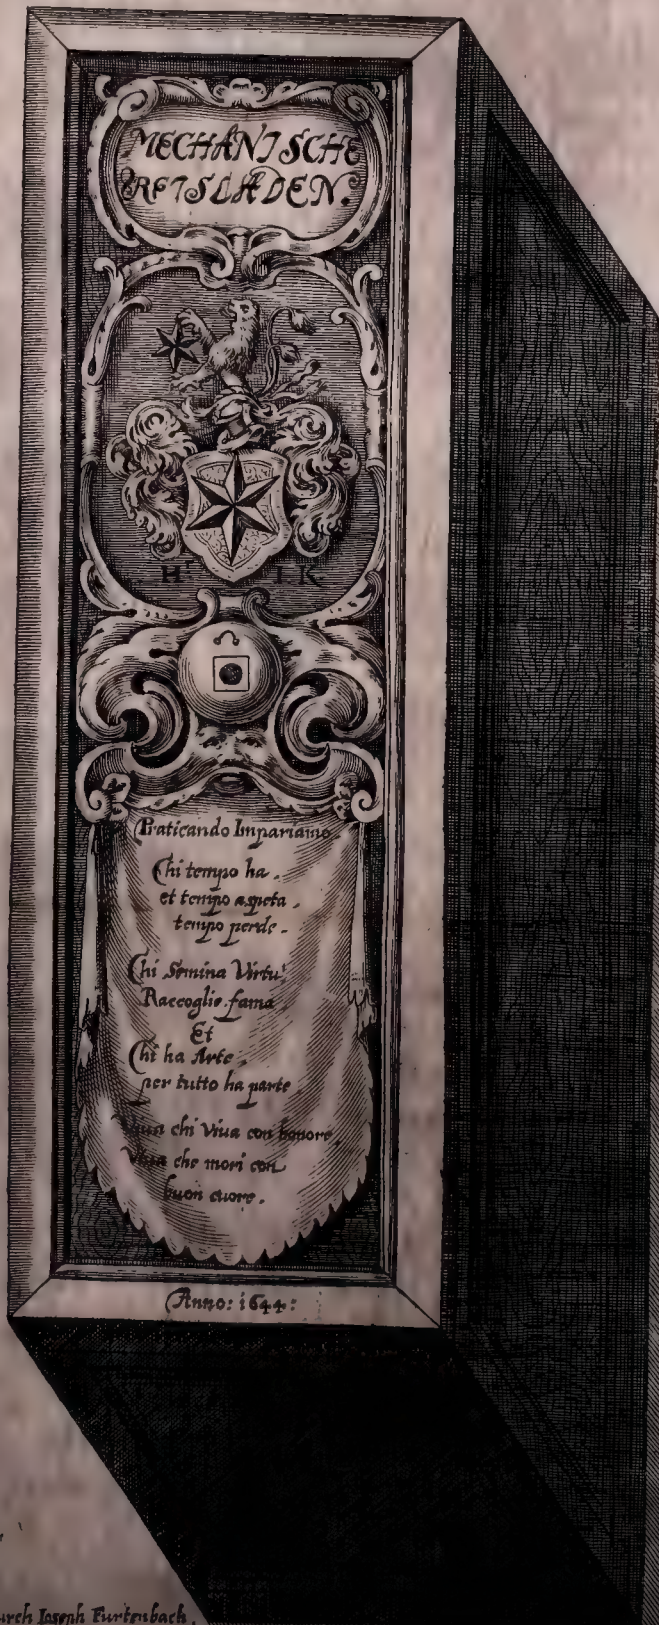 MECHANISCHE
REISLADEN.
H I K
Praticando Impariamo
Chi tempo ha.
et tempo aspeta.
tempo perde.
Chi Semina Virtu'
Raccoglie fama
Et
Chi ha Arte.
per tutto ha parte
Viua chi Viua con honore.
Viua che mori con
buon cuore.
Anno: 1644:
Joseph Furtenbach.